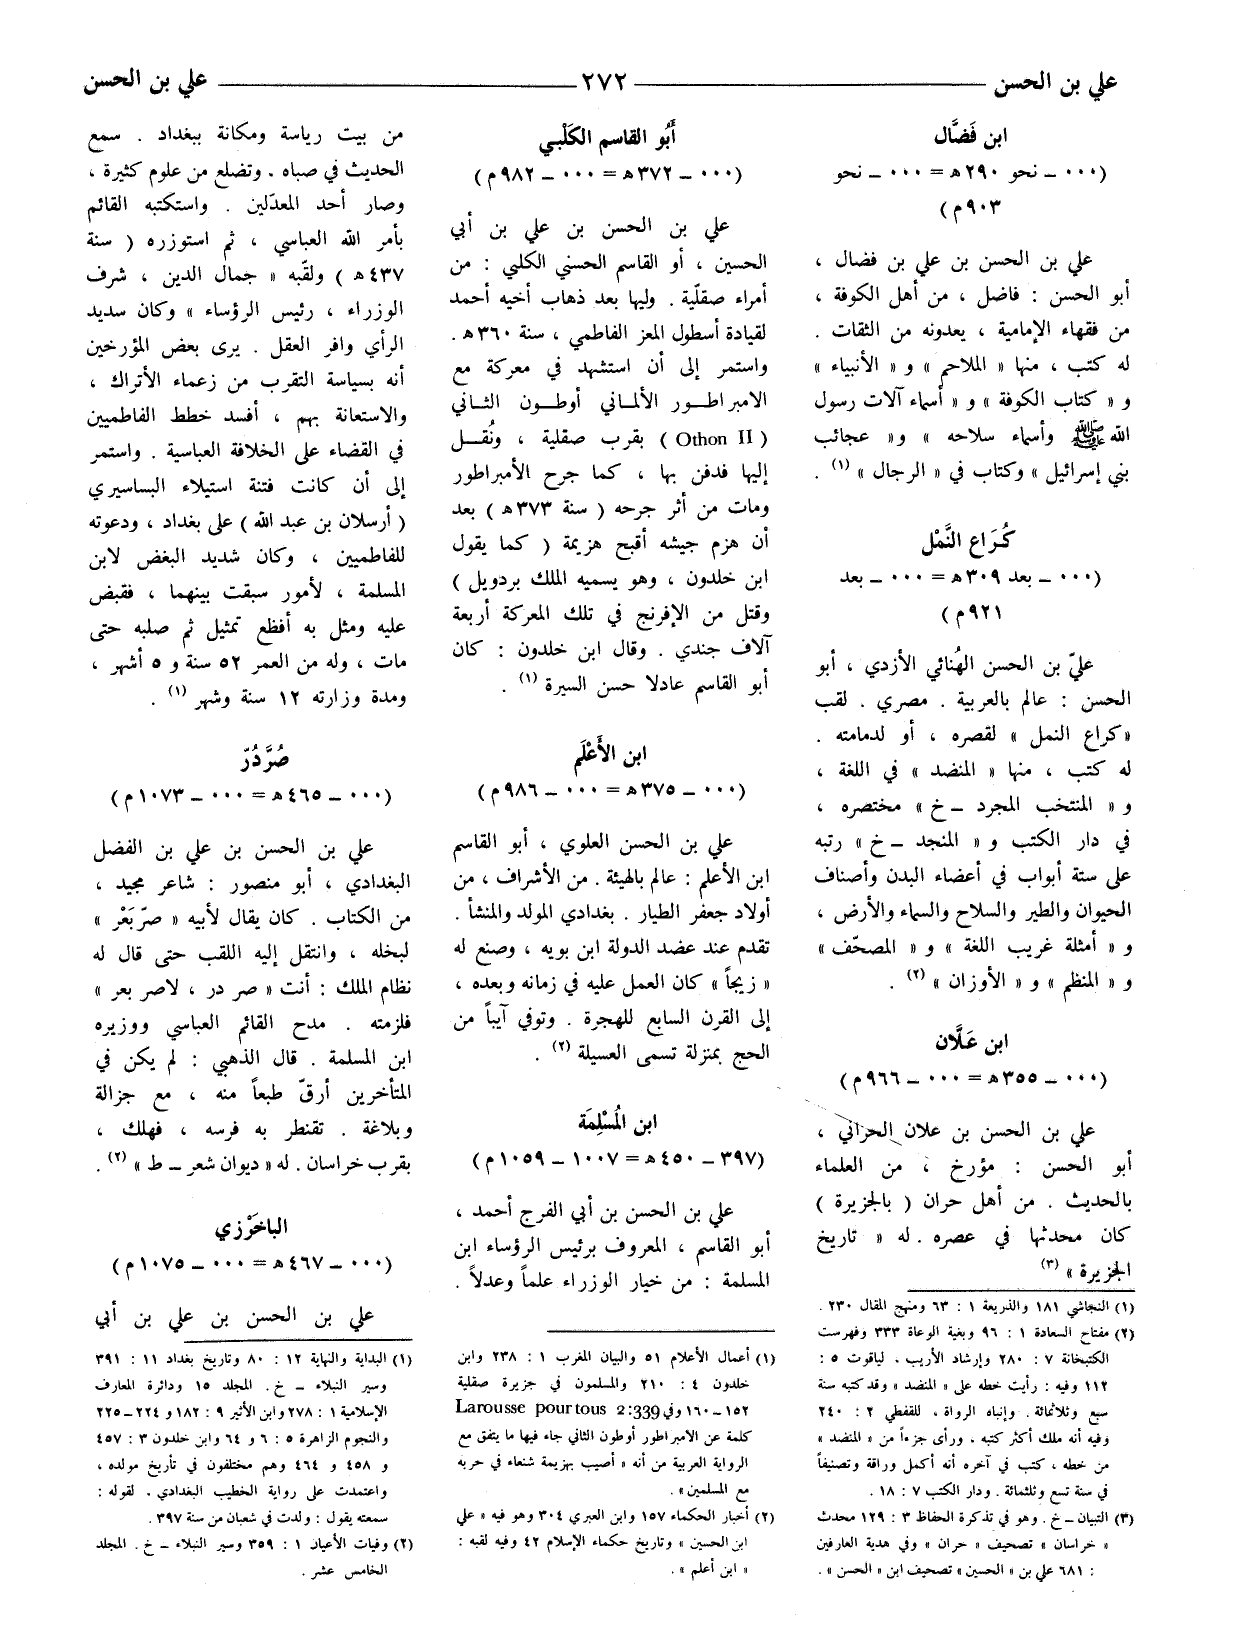 علي بن الحسن ٢٧٢ علي بن الحسن
ابن فَضَّال
(٠٠٠ ــ نحو ٢٩٠ هـ = ٠٠٠ ــ نحو
٩٠٣ م)
علي بن الحسن بن علي بن فضال ،
أبو الحسن : فاضل ، من أهل الكوفة ،
من فقهاء الإمامية ، يعدونه من الثقات .
له كتب ، منها « الملاحم » و « الأنبياء »
و « كتاب الكوفة » و « أسماء آلات رسول
الله ﷺ وأسماء سلاحه » و« عجائب
بني إسرائيل » وكتاب في « الرجال » (١) .
كُرَاع النَّمْل
(٠٠٠ ــ بعد ٣٠٩ هـ = ٠٠٠ ــ بعد
٩٢١ م)
عليّ بن الحسن الهُنائي الأزدي ، أبو
الحسن : عالم بالعربية . مصري . لقب
«كراع النمل » لقصره ، أو لدمامته .
له كتب ، منها « المنضد » في اللغة ،
و « المنتخب المجرد ــ خ » مختصره ،
في دار الكتب و « المنجد ــ خ » رتبه
على ستة أبواب في أعضاء البدن وأصناف
الحيوان والطير والسلاح والسماء والأرض ،
و « أمثلة غريب اللغة » و « المصحّف »
و « المنظم » و « الأوزان » (٢) .
ابن عَلَّان
(٠٠٠ ــ ٣٥٥ هـ = ٠٠٠ ــ ٩٦٦ م)
علي بن الحسن بن علان الحراني ،
أبو الحسن : مؤرخ ، من العلماء
بالحديث . من أهل حران ( بالجزيرة )
كان محدثها في عصره . له « تاريخ
الجزيرة » (٣)
(١) النجاشي ١٨١ والذريعة ١ : ٦٣ ومنهج المقال ٢٣٠ .
(٢) مفتاح السعادة ١ : ٩٦ وبغية الوعاة ٣٣٣ وفهرست
الكتبخانة ٧ : ٢٨٠ وإرشاد الأريب ، لياقوت ٥ :
١١٢ وفيه : رأيت خطه على « المنضد » وقد كتبه سنة
سبع وثلاثمائة . وإنباه الرواة ، للقفطي ٢ : ٢٤٠
وفيه أنه ملك أكثر كتبه ، ورأى جزءاً من « المنضد »
من خطه ، كتب في آخره أنه أكمل وراقة وتصنيفاً
في سنة تسع وثلثمائة . ودار الكتب ٧ : ١٨ .
(٣) التبيان ــ خ . وهو في تذكرة الحفاظ ٣ : ١٢٩ محدث
« خراسان » تصحيف « حران » وفي هدية العارفين
: ٦٨١ علي بن « الحسين » تصحيف ابن « الحسن » .
أَبُو القاسم الكَلْبي
(٠٠٠ ــ ٣٧٢ هـ = ٠٠٠ ــ ٩٨٢ م)
علي بن الحسن بن علي بن أبي
الحسين ، أو القاسم الحسني الكلبي : من
أمراء صقلّية . وليها بعد ذهاب أخيه أحمد
لقيادة أسطول المعز الفاطمي ، سنة ٣٦٠ هـ .
واستمر إلى أن استشهد في معركة مع
الامبراطــور الألمـاني أوطــون الثـاني
( Othon II ) بقرب صقلية ، ونُقـل
إليها فدفن بها ، كما جرح الأمبراطور
ومات من أثر جرحه ( سنة ٣٧٣ هـ ) بعد
أن هزم جيشه أقبح هزيمة ( كما يقول
ابن خلدون ، وهو يسميه الملك بردويل )
وقتل من الإفرنج في تلك المعركة أربعة
آلاف جندي . وقال ابن خلدون : كان
أبو القاسم عادلا حسن السيرة (١) .
ابن الأَعْلَم
(٠٠٠ ــ ٣٧٥ هـ = ٠٠٠ ــ ٩٨٦ م)
علي بن الحسن العلوي ، أبو القاسم
ابن الأعلم : عالم بالهيئة . من الأشراف ، من
أولاد جعفر الطيار . بغدادي المولد والمنشأ .
تقدم عند عضد الدولة ابن بويه ، وصنع له
« زيجاً » كان العمل عليه في زمانه وبعده ،
إلى القرن السابع للهجرة . وتوفي آيباً من
الحج بمنزلة تسمى العسيلة (٢) .
ابن المُسْلِمَة
(٣٩٧ ــ ٤٥٠ هـ = ١٠٠٧ ــ ١٠٥٩ م)
علي بن الحسن بن أبي الفرج أحمد ،
أبو القاسم ، المعروف برئيس الرؤساء ابن
المسلمة : من خيار الوزراء علماً وعدلاً .
(١) أعمال الأعلام ٥١ والبيان المغرب ١ : ٢٣٨ وابن
خلدون ٤ : ٢١٠ والمسلمون في جزيرة صقلية
١٥٢ ــ ١٦٠ وفي Larousse pour tous 2:339
كلمة عن الامبراطور أوطون الثاني جاء فيها ما يتفق مع
الرواية العربية من أنه « أصيب بهزيمة شنعاء في حربه
مع المسلمين » .
(٢) أخبار الحكماء ١٥٧ وابن العبري ٣٠٤ وهو فيه « علي
ابن الحسين » وتاريخ حكماء الإسلام ٤٢ وفيه لقبه :
« ابن أعلم » .
من بيت رياسة ومكانة ببغداد . سمع
الحديث في صباه . وتضلع من علوم كثيرة ،
وصار أحد المعدّلين . واستكتبه القائم
بأمر الله العباسي ، ثم استوزره ( سنة
٤٣٧ هـ ) ولقّبه « جمال الدين ، شرف
الوزراء ، رئيس الرؤساء » وكان سديد
الرأي وافر العقل . يرى بعض المؤرخين
أنه بسياسة التقرب من زعماء الأتراك ،
والاستعانة بهم ، أفسد خطط الفاطميين
في القضاء على الخلافة العباسية . واستمر
إلى أن كانت فتنة استيلاء البساسيري
( أرسلان بن عبد الله ) على بغداد ، ودعوته
للفاطميين ، وكان شديد البغض لابن
المسلمة ، لأمور سبقت بينهما ، فقبض
عليه ومثل به أفظع تمثيل ثم صلبه حتى
مات ، وله من العمر ٥٢ سنة و ٥ أشهر ،
ومدة وزارته ١٢ سنة وشهر (١) .
صُرَّدُرّ
(٠٠٠ ــ ٤٦٥ هـ = ٠٠٠ ــ ١٠٧٣ م)
علي بن الحسن بن علي بن الفضل
البغدادي ، أبو منصور : شاعر مجيد ،
من الكتاب . كان يقال لأبيه « صرّبَعْر »
لبخله ، وانتقل إليه اللقب حتى قال له
نظام الملك : أنت « صر در ، لاصر بعر »
فلزمته . مدح القائم العباسي ووزيره
ابن المسلمة . قال الذهبي : لم يكن في
المتأخرين أرقّ طبعاً منه ، مع جزالة
وبلاغة . تقنطر به فرسه ، فهلك ،
بقرب خراسان . له « ديوان شعر ــ ط » (٢) .
الباخَرْزي
(٠٠٠ ــ ٤٦٧ هـ = ٠٠٠ ــ ١٠٧٥ م)
علي بن الحسن بن علي بن أبي
(١) البداية والنهاية ١٢ : ٨٠ وتاريخ بغداد ١١ : ٣٩١
وسير النبلاء ــ خ . المجلد ١٥ ودائرة المعارف
الإسلامية ١ : ٢٧٨ وابن الأثير ٩ : ١٨٢ و ٢٢٤ ــ ٢٢٥
والنجوم الزاهرة ٥ : ٦ و ٦٤ وابن خلدون ٣ : ٤٥٧
و ٤٥٨ و ٤٦٤ وهم مختلفون في تأريخ مولده ،
واعتمدت على رواية الخطيب البغدادي . لقوله :
سمعته يقول : ولدت في شعبان من سنة ٣٩٧ .
(٢) وفيات الأعيان ١ : ٣٥٩ وسير النبلاء ــ خ . المجلد
الخامس عشر .